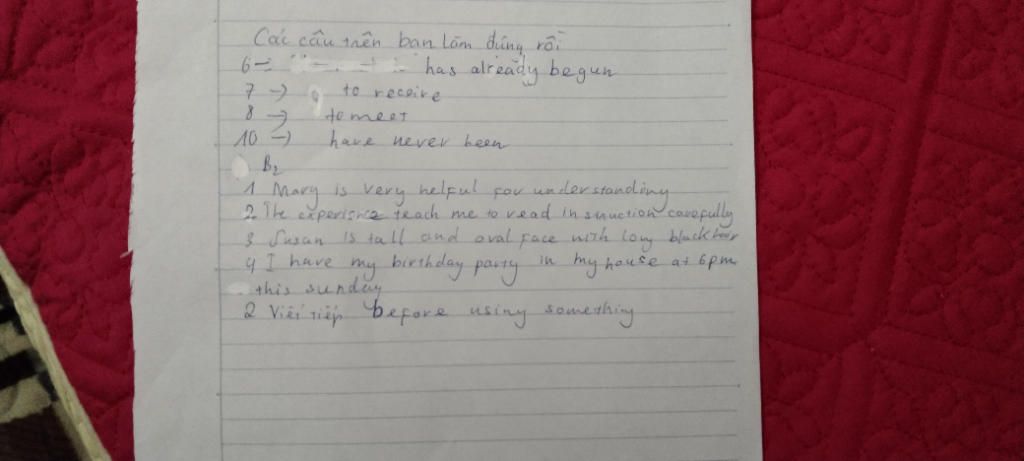 Các câu trên bạn làm đúng rồi
6 → has already begun
7 → to receive
8 → to meet
10 → have never been
B2
1 Mary is very helful for understanding
2 The experience teach me to read instruction carefully
3 Susan is tall and oval face with long black hair
4 I have my birthday party in my house at 6pm
this sunday
2 Viết tiếp before using something